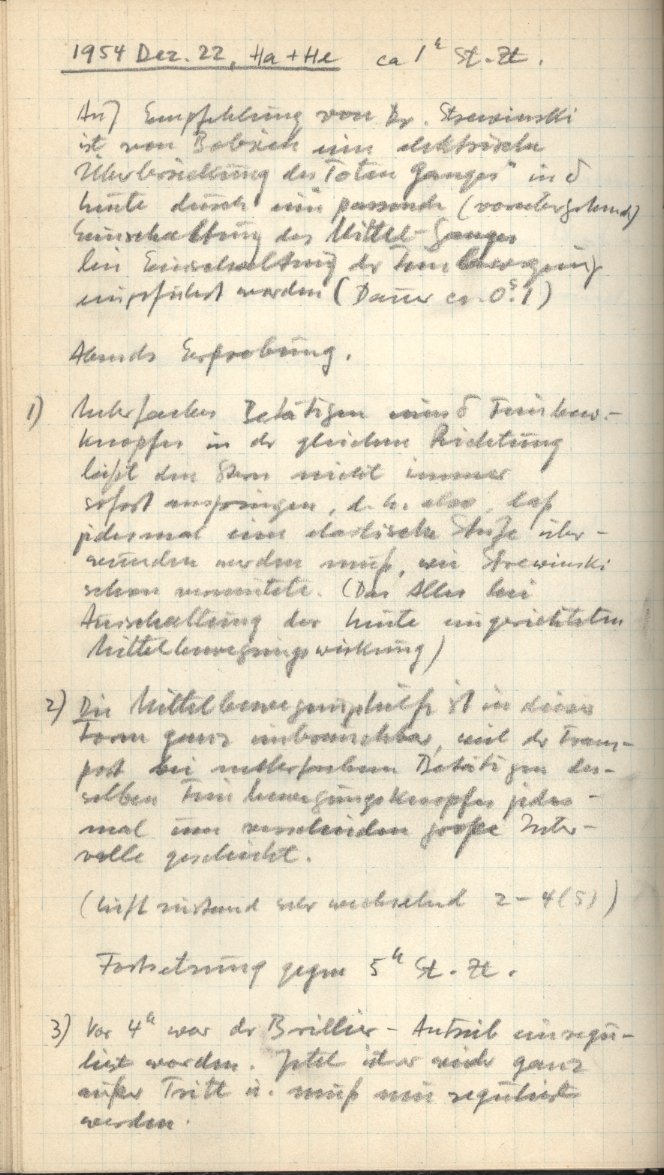 1954 Dez. 22, Ha + He ca 1h St. Zt.
Auf Empfehlung von Dr. Strewinski
ist von Bobsien eine elektrische
Überbrückung des Toten Ganges" in δ
heute durch eine passende (vorübergehende)
Einschaltung des Mittel-Ganges
bei Einschaltung der Feinbewegung
eingeführt worden (Dauer ca. 0s.1)
Abends Erprobung.
1) Mehrfaches Betätigen eines δ Feinbew.-
knopfes in der gleichen Richtung
läßt den Stern nicht immer
sofort anspringen, d.h. also, daß
jedesmal eine elastische Stufe über-
wunden werden muß, wie Strewinski
schon vermutete. (Das Alles bei
Ausschaltung der heute eingerichteten
Mittelbewegungswirkung)
2) Die Mittelbewegungshilfe ist in dieser
Form ganz unbrauchbar, weil der Trans-
port bei mehrfachem Betätigen des-
selben Feinbewegungsknopfes jedes-
mal um verschieden große Inter-
valle geschieht.
(Luftzustand sehr wechselnd 2-4(5))
Fortsetzung gegen 5h St. Zt.
3) Vor 4h war der Brillier-Antrieb einregu-
liert worden. Jetzt ist er wieder ganz
außer Tritt u. muß neu reguliert
werden.